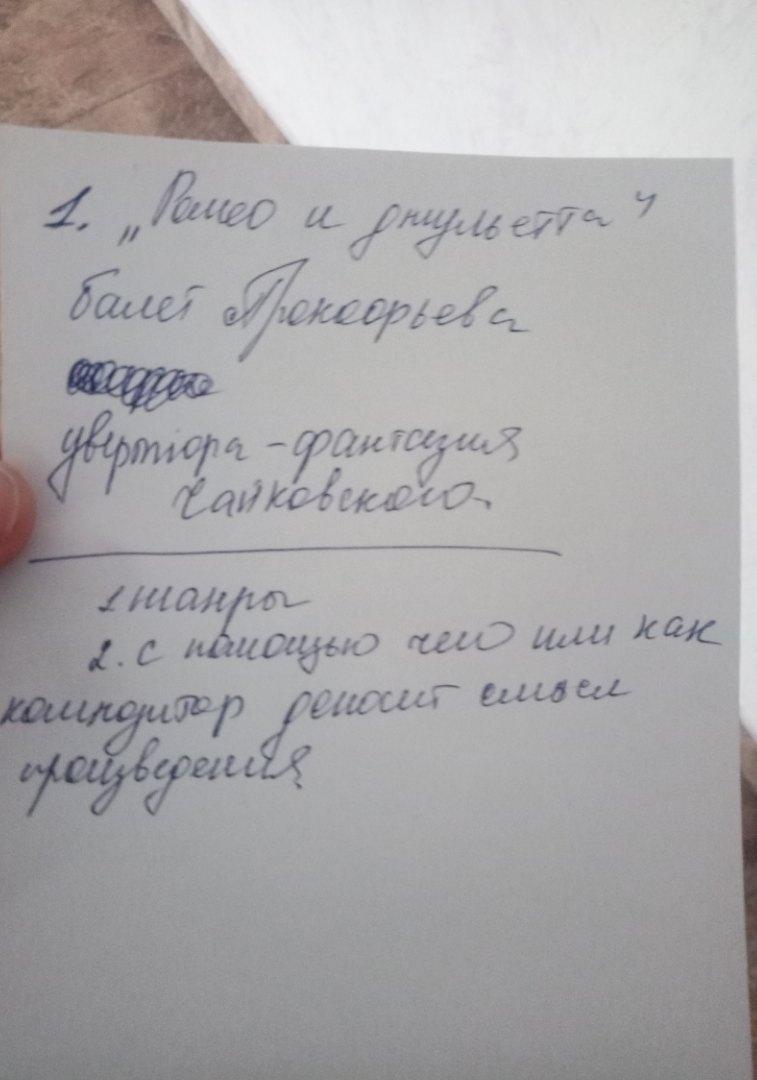 1. „Ромео и джульетта"
балет Прокофьева
увертюра - фантазия
Чайковского.
1 жанры
2. с помощью чего или как
композитор доносит смысл
произведения